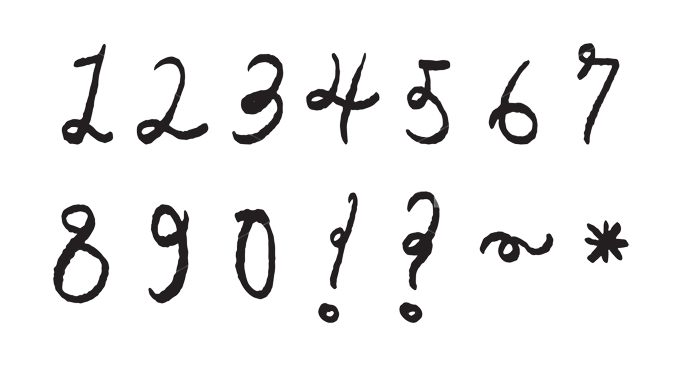 1 2 3 4 5 6 7
8 9 0 ! ? ~ *